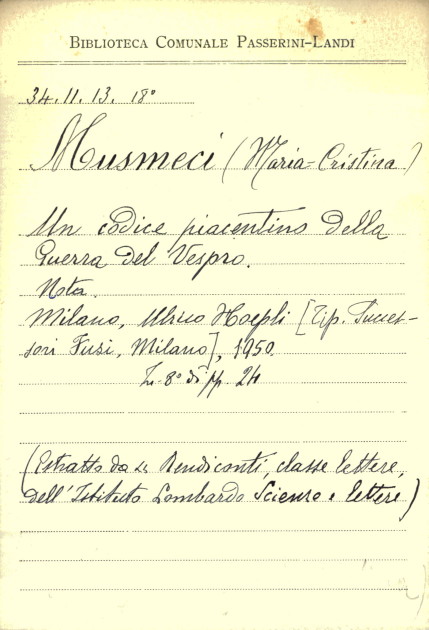 BIBLIOTECA COMUNALE PASSERINI-LANDI
34.11.13. 18°
Musmeci (Maria-Cristina)
Un codice piacentino della
Guerra del Vespro.
Nota.
Milano, Ulrico Hoepli [Tip. Succes-
sori Fusi, Milano], 1950.
In-8° di pp. 24
(Estratto da Rendiconti, classe lettere,
dell'Istituto Lombardo Scienze e lettere)